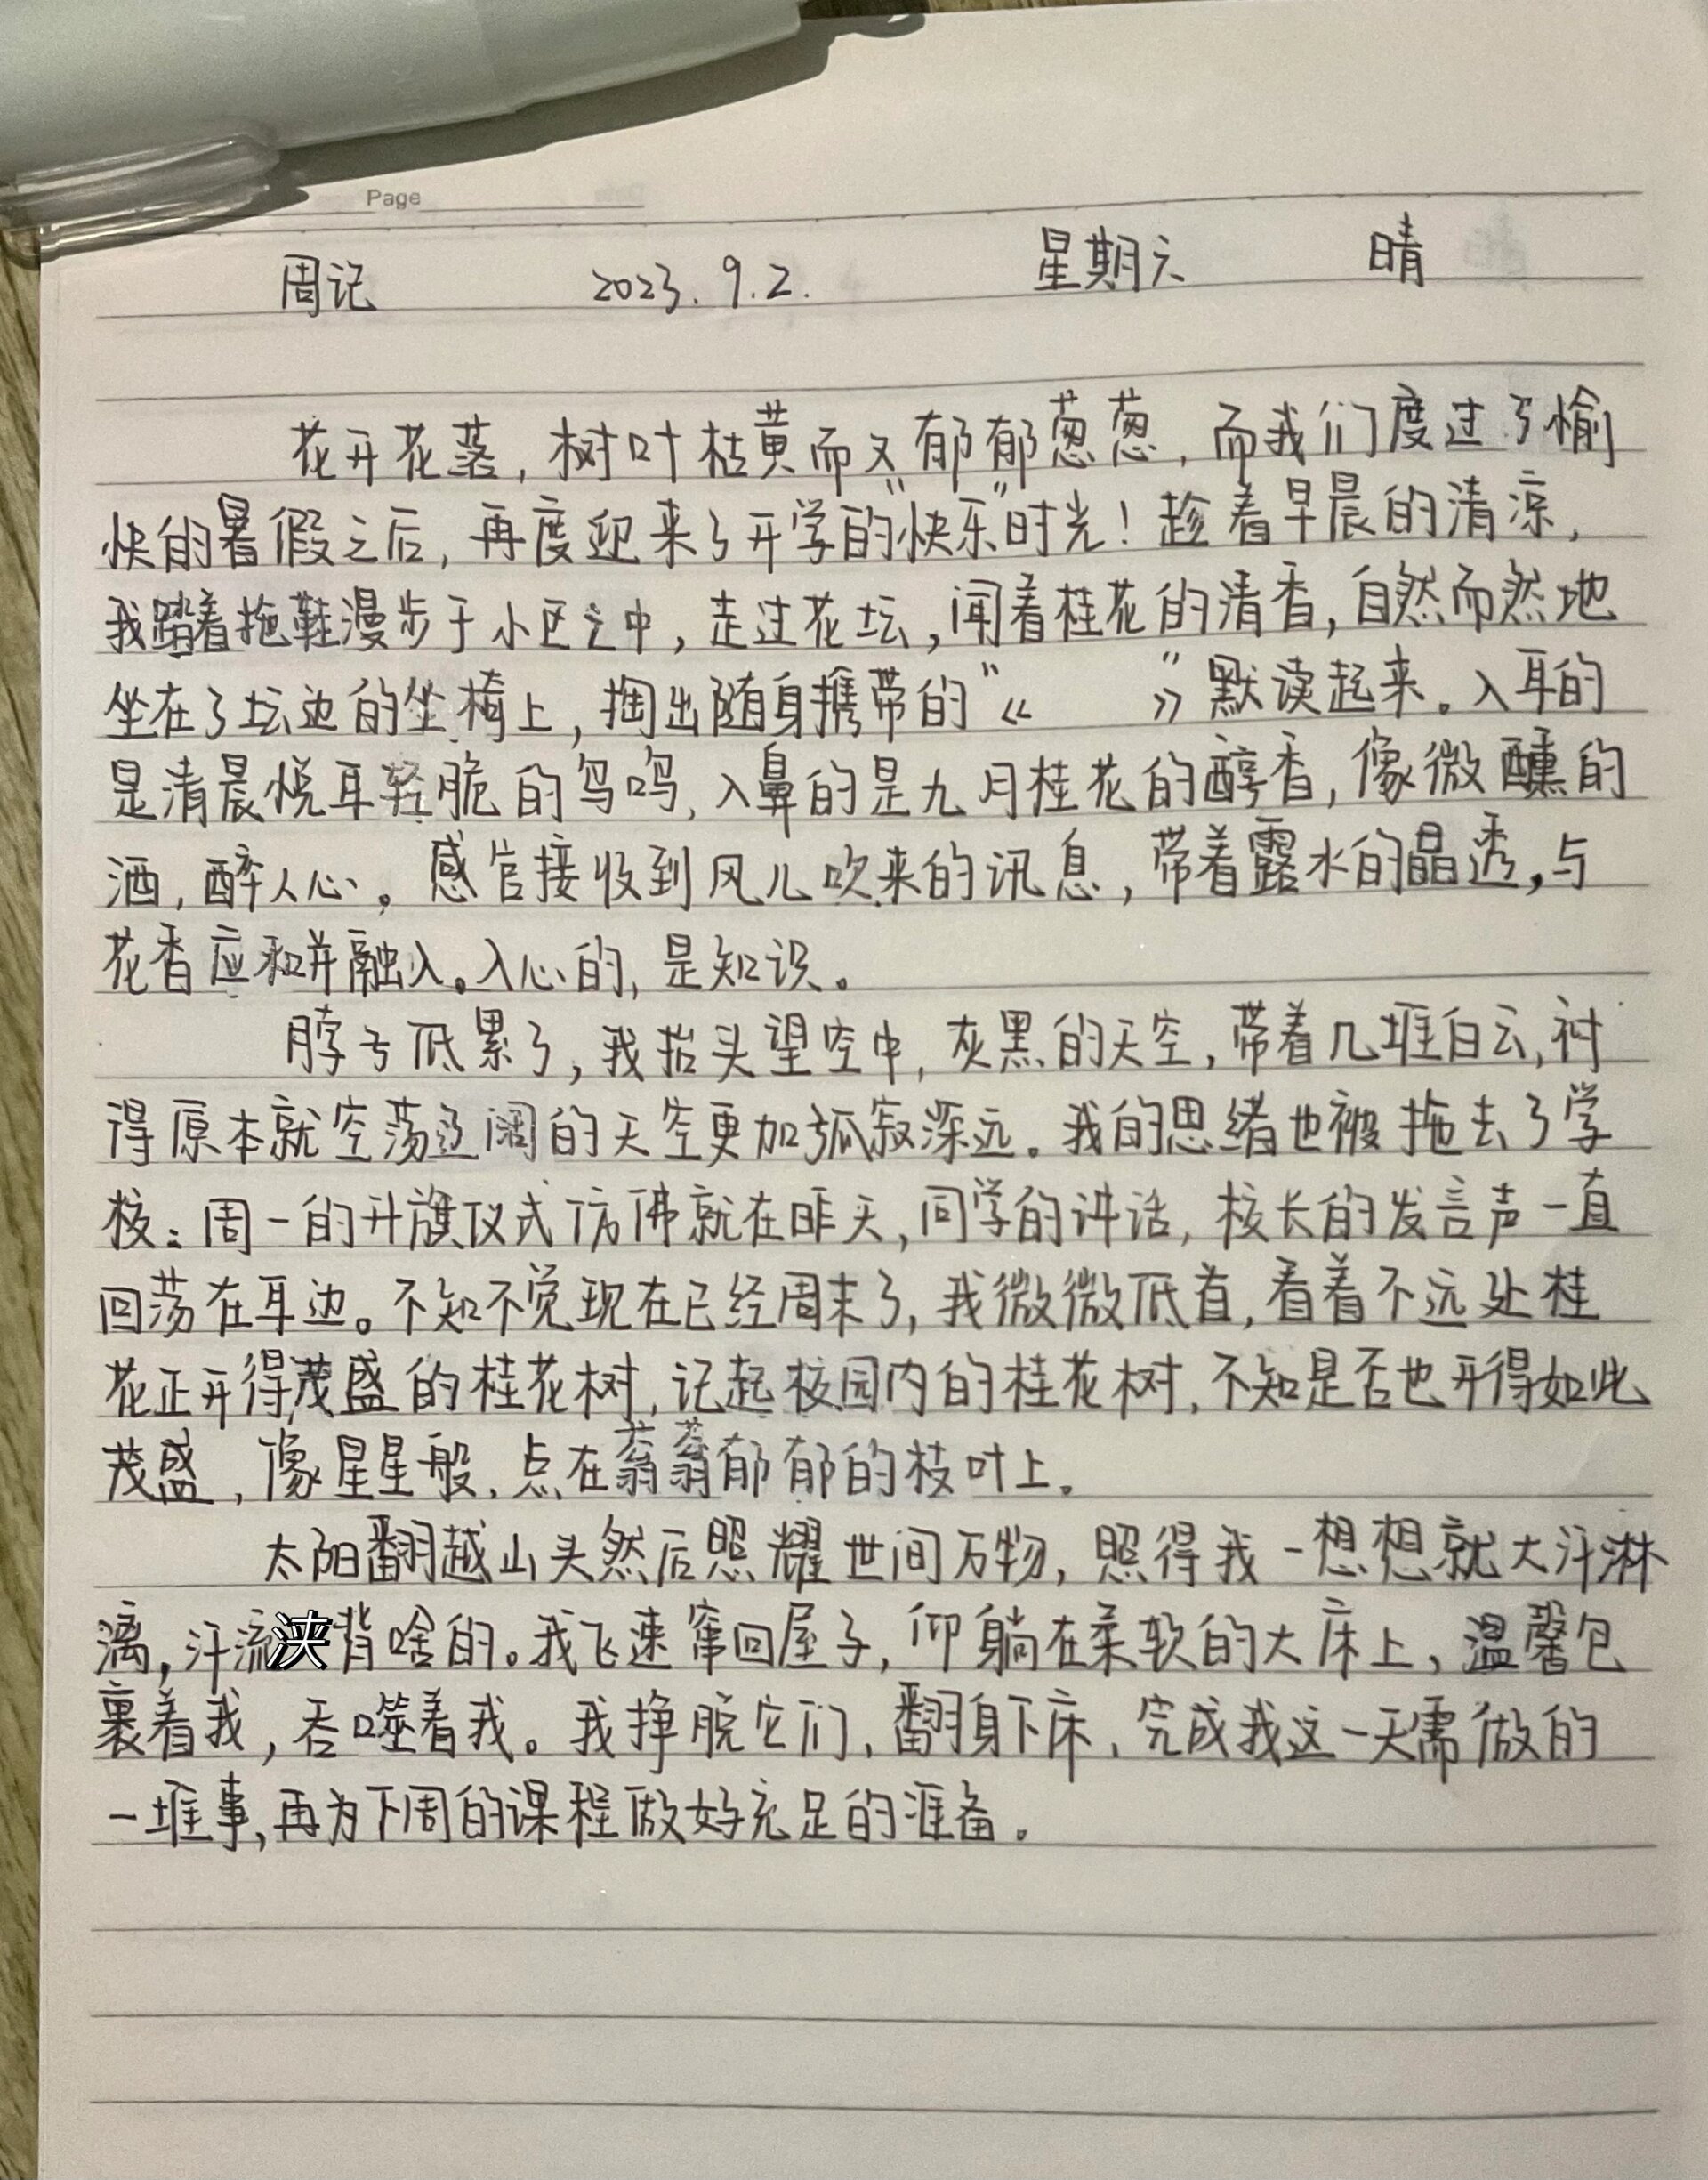 Page
周记 2023.9.2. 星期六 晴
花开花落，树叶枯黄而又郁郁葱葱，而我们度过了愉
快的暑假之后，再度迎来了开学的“快乐”时光！趁着早晨的清凉，
我踏着拖鞋漫步于小区之中，走过花坛，闻着桂花的清香，自然而然地
坐在了坛边的坐椅上，掏出随身携带的“《 》”默读起来。入耳的
是清晨悦耳轻脆的鸟鸣，入鼻的是九月桂花的醇香，像微醺的
酒，醉人心。感官接收到风儿吹来的讯息，带着露水的晶透，与
花香应和并融入。入心的，是知识。
脖子低累了，我抬头望空中，灰黑的天空，带着几堆白云，衬
得原本就空荡辽阔的天空更加孤寂深远。我的思绪也被拖去了学
校：周一的升旗仪式仿佛就在昨天，同学的讲话，校长的发言声一直
回荡在耳边。不知不觉现在已经周末了，我微微低首，看着不远处桂
花正开得茂盛的桂花树，记起校园内的桂花树，不知是否也开得如此
茂盛，像星星般，点在蓊蓊郁郁的枝叶上。
太阳翻越山头然后照耀世间万物，照得我一想想就大汗淋
漓，汗流浃背啥的。我飞速窜回屋子，仰躺在柔软的大床上，温馨包
裹着我，吞噬着我。我挣脱它们，翻身下床，完成我这一天需做的
一堆事，再为下周的课程做好充足的准备。